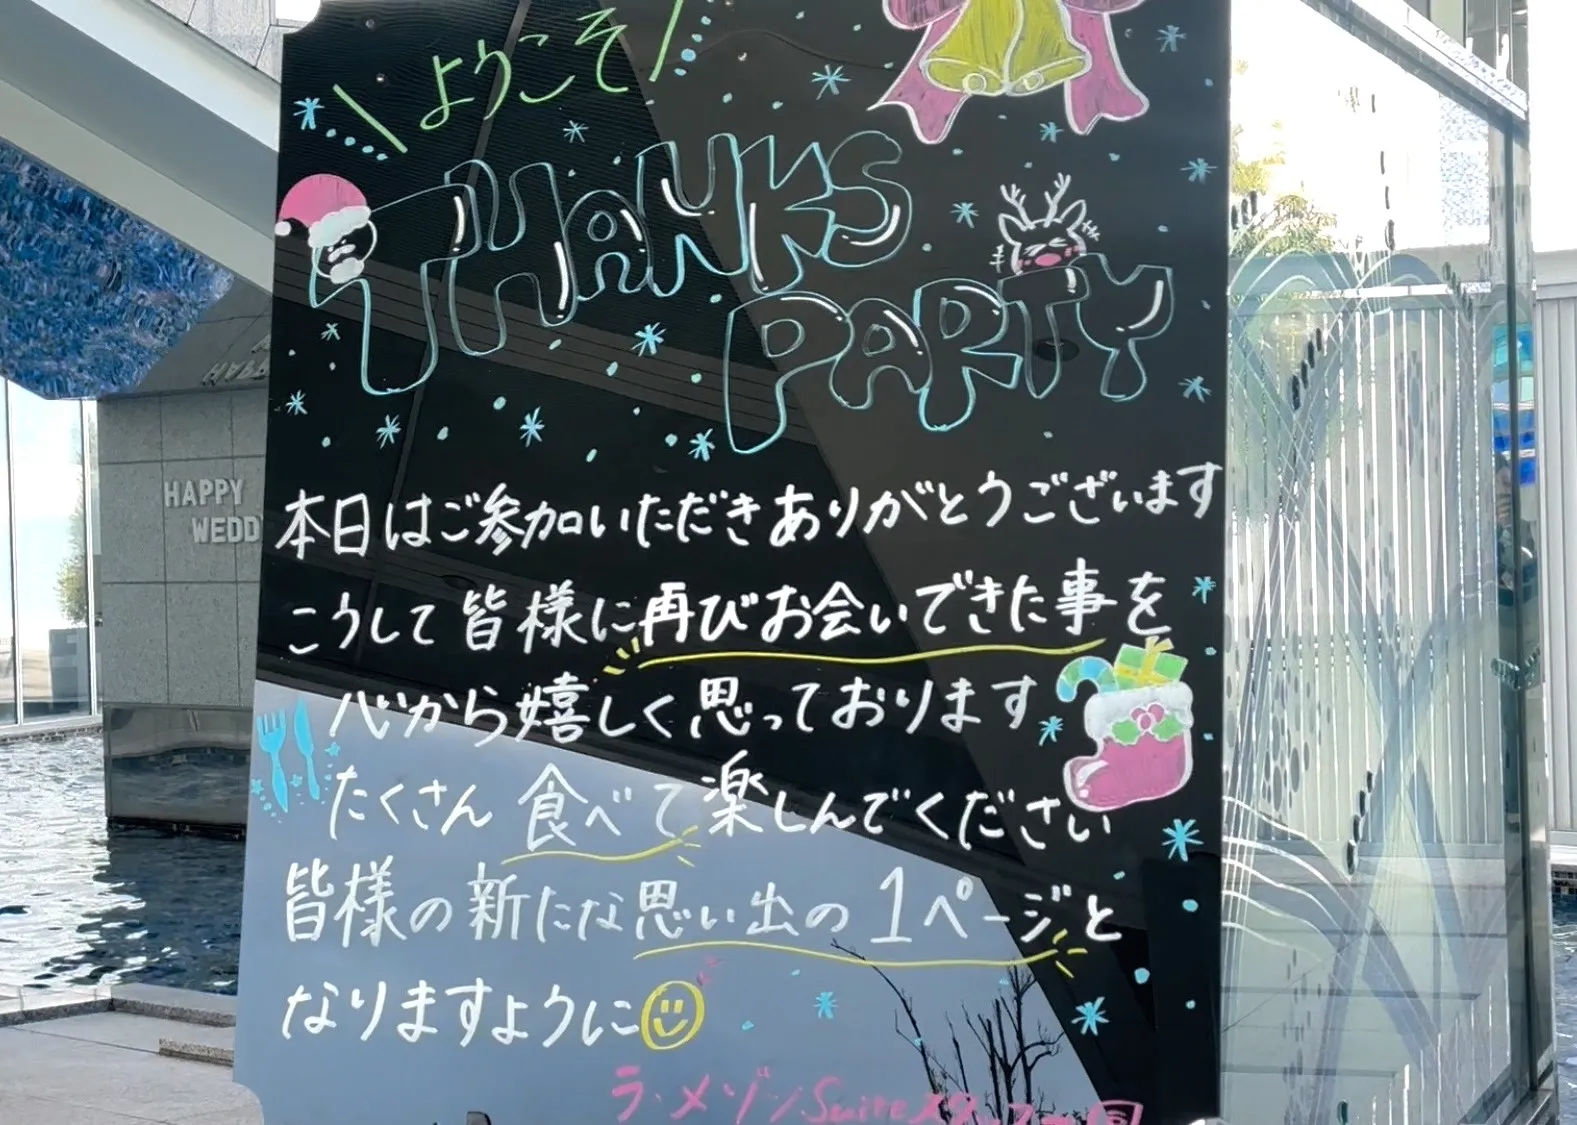 ようこそ
THANKS
PARTY
HAPPY
WEDD
本日はご参加いただきありがとうございます
こうして皆様に再びお会いできた事を
心から嬉しく思っております
たくさん食べて楽しんでください
皆様の新たな思い出の1ページと
なりますように
ラ・メゾンSuiteスタッフ一同